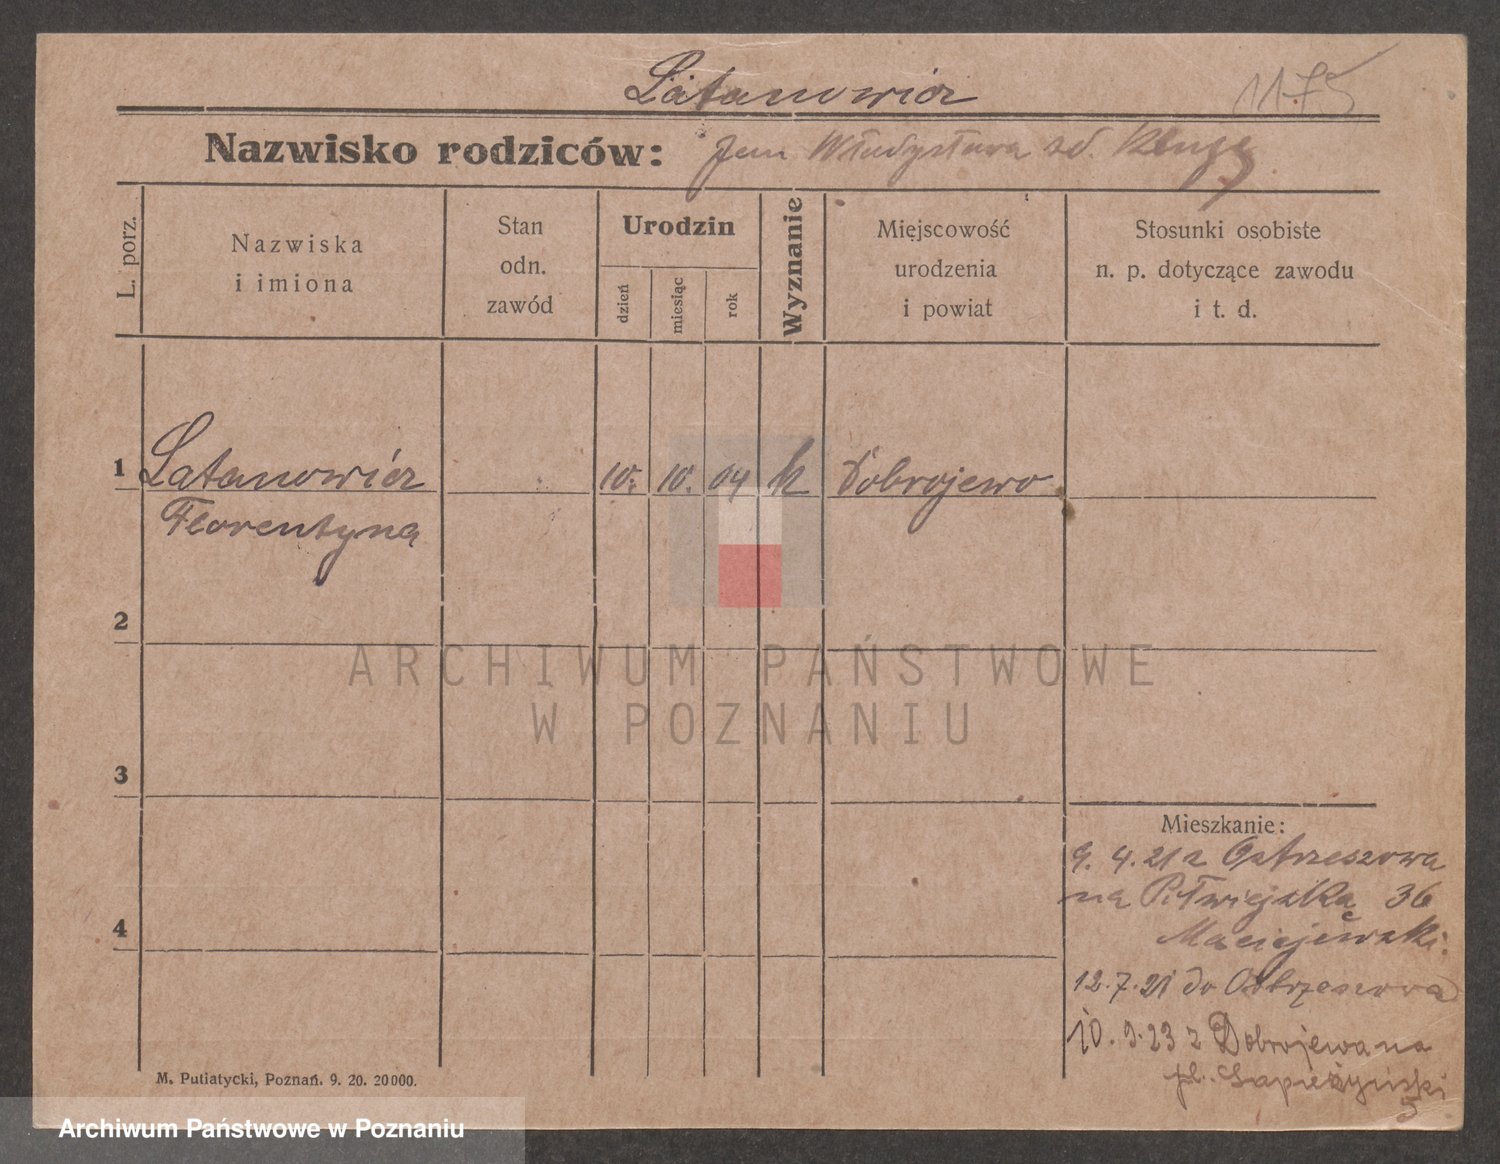 Latanowicz
1175
Nazwisko rodziców: Jan Władysława zd. Kluge
L. porz.
Nazwiska
i imiona
Stan
odn.
zawód
Urodzin
dzień
miesiąc
rok
Wyznanie
Miejscowość
urodzenia
i powiat
Stosunki osobiste
n. p. dotyczące zawodu
i t. d.
1 Latanowicz 10. 10. 04 k Dobrojewo
Florentyna
2
3
4
ARCHIWUM PAŃSTWOWE
W POZNANIU
Mieszkanie:
9. 4. 21 z Ostrzeszowa
na Półwiejską 36
Maciejewski.
12. 7. 21 do Ostrzeszowa
10. 9. 23 z Dobrojewa na
pl. Sapieżyński
5
M. Putiatycki, Poznań. 9. 20. 20000.
Archiwum Państwowe w Poznaniu